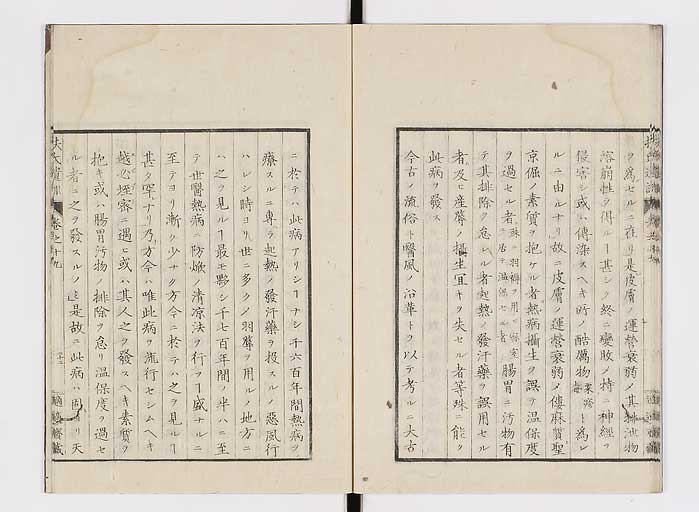 ヲ為セルニ在リ是皮膚ノ運營衰弱ノ其排泄物
溶崩性ヲ得ルヿ甚シク終ニ變敗ノ特ニ神經ヲ
侵害シ或ハ傳染スヘキ所ノ酷厲物 トノ為レ
ルニ由ルナリ故ニ皮膚ノ運營衰弱ノ僂麻質聖
京倔ノ素質ヲ抱ケル者熱病攝生ヲ誤ヲ温保度
ヲ過セル者 腸胃ニ汚物有
テ其排除ヲ怠レル者起熱ノ發汗藥ヲ誤用セル
者及ヒ産蓐ノ攝生宜キヲ失セル者等殊ニ能ク
此病ヲ發ス
今古ノ流俗ト醫風ノ沿革トヲ以テ考ルニ大古
ニ於テハ此病アリシーナシ千六百年間熱病ヲ
療スルニ専ラ起熱ノ發汗藥ヲ投スルノ惡風行
ハレシ時ヨリ世ニ多クノ羽蓐ヲ用ルノ地方ニ
ハ之ヲ見ルヿ最モ夥シ千七百年間ノ半ハニ至
テ世醫熱病ニ防焮ノ清凉法ヲ行フヿ盛ナルニ
至テヨリ漸ク少ナク方今ニ於テハ之ヲ見ルヿ
甚タ罕ナリ乃方今ハ唯此病ヲ流行セシムヘキ
越必垤密ニ遇ヒ或ハ其人之ヲ發スヘキ素質ヲ
抱キ或ハ腸胃汚物ノ排除ヲ怠リ温保度ヲ過セ
ル者ニ之ヲ發スルノミ是故ニ此病ハ固ヨリ天
扶氏遺訓 卷之十九